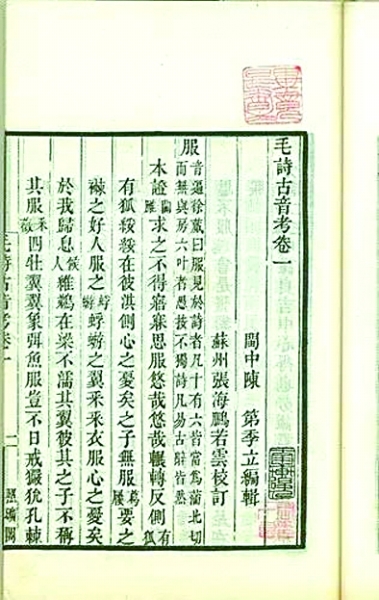 毛詩古音考卷一
閩中陳 第季立編輯
蘇州張海鵬若雲校訂
服 音逼徐蕆曰服見於詩者凡十有六皆當為蒲北切
而無與房六叶者愚按不獨詩凡易古辭皆然
本證 關雎 求之不得寤寐思服悠哉悠哉輾轉反側 有狐
有狐綏綏在彼淇側心之憂矣之子無服 葛屨 要之
襋之好人服之 蜉蝣 蜉蝣之翼采采衣服心之憂矣
於我歸息 候人 維鵜在梁不濡其翼彼其之子不稱
其服 采薇 四牡翼翼象弭魚服豈不日戒玁狁孔棘
毛詩古音考卷一
照曠閣